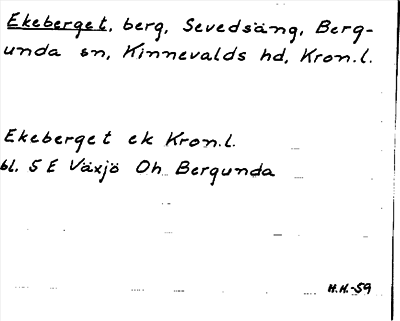 Ekeberget, berg, Sevedsäng, Berg-
unda sn, Kinnevalds hd, Kron.l.
Ekeberget ek Kron.l.
bl. 5 E Växjö Oh Bergunda
H.H.-59